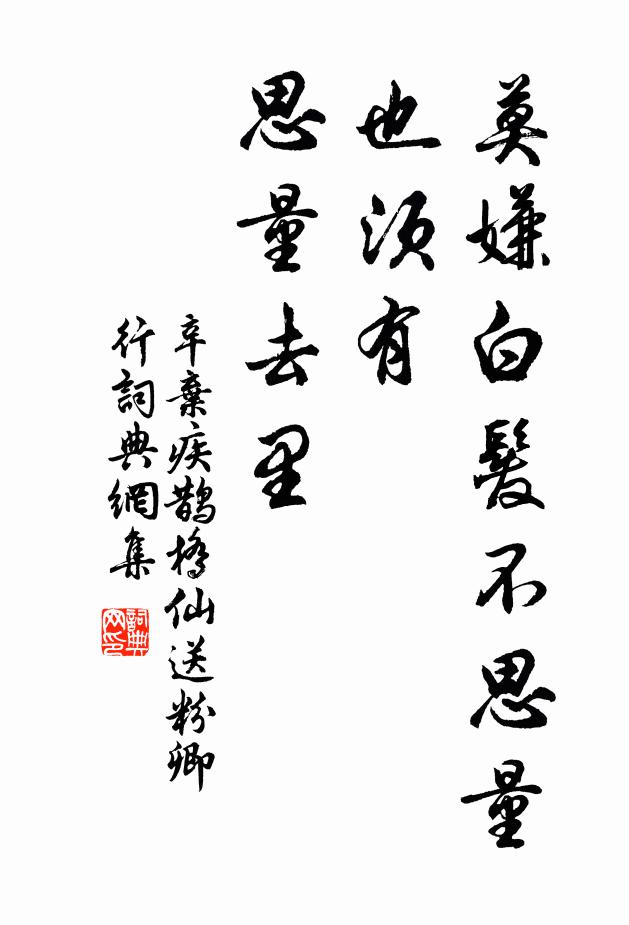 莫嫌白髮不思量
也須有
思量去里
辛棄疾鵲橋仙送粉卿
行詞典網集
詞典
网印